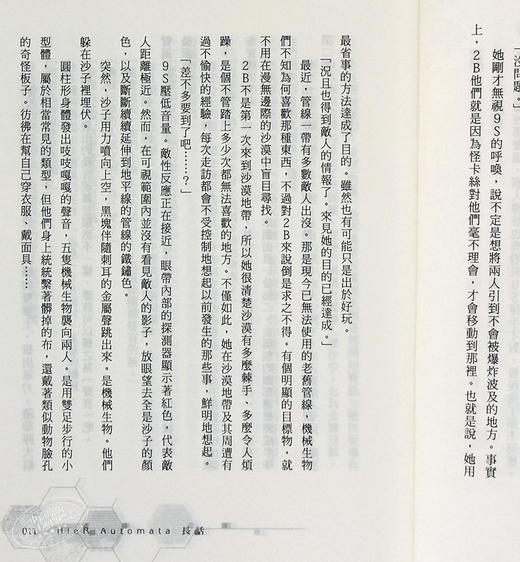 沒問題。
她剛才無視９Ｓ的呼喚，說不定是想將兩人引到不會被爆炸波及的地方。事實
上，２Ｂ他們就是因為怪卡絲對他們毫不理會，才會移動到那裡。也就是說，她用
最省事的方法達成了目的。雖然也有可能只是出於好玩。
「況且也得到敵人的情報了。來見她的目的已經達成。」
最近，管線一帶有多數敵人出沒。那是現今已無法使用的老舊管線，機械生物
們不知為何喜歡那種東西，不過對２Ｂ來說倒是求之不得。有個明顯的目標物，就
不用在漫無邊際的沙漠中盲目尋找。
２Ｂ不是第一次來到沙漠地帶，所以她很清楚沙漠有多麼棘手、多麼令人煩
躁，是個不管踏上多少次都無法喜歡的地方。不僅如此，她在沙漠地帶及其周遭有
過不愉快的經驗，每次走訪都會不受控制地想起以前發生的那些事，鮮明地想起。
「差不多要到了吧……？」
９Ｓ壓低音量。敵性反應正在接近，眼帶內部的探測器顯示著紅色，代表敵
人距離極近。然而，在可視範圍內並沒有看見敵人的影子，放眼望去全是沙子的顏
色，以及斷斷續續延伸到地平線的管線的鐵鏽色。
突然，沙子用力噴向上空，黑塊伴隨刺耳的金屬聲跳出來。是機械生物。他們
躲在沙子裡埋伏。
圓柱形身體發出吱吱嘎嘎的聲音，五隻機械生物襲向兩人。是用雙足步行的小
型體，屬於相當常見的類型，但他們身上統統繫著髒掉的布，還戴著類似動物臉孔
的奇怪板子。彷彿在幫自己穿衣服、戴面具……
Automata 長話